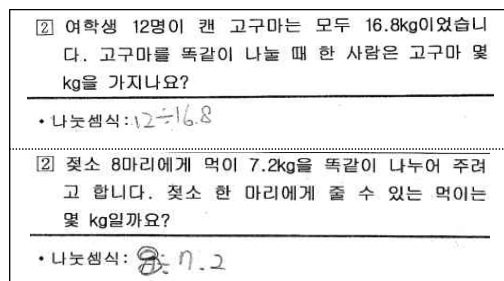 ② 여학생 12명이 캔 고구마는 모두 16.8kg이었습니
다. 고구마를 똑같이 나눌 때 한 사람은 고구마 몇
kg을 가지나요?
• 나눗셈식: 12÷16.8
② 젖소 8마리에게 먹이 7.2kg을 똑같이 나누어 주려
고 합니다. 젖소 한 마리에게 줄 수 있는 먹이는
몇 kg일까요?
• 나눗셈식: 8÷7.2